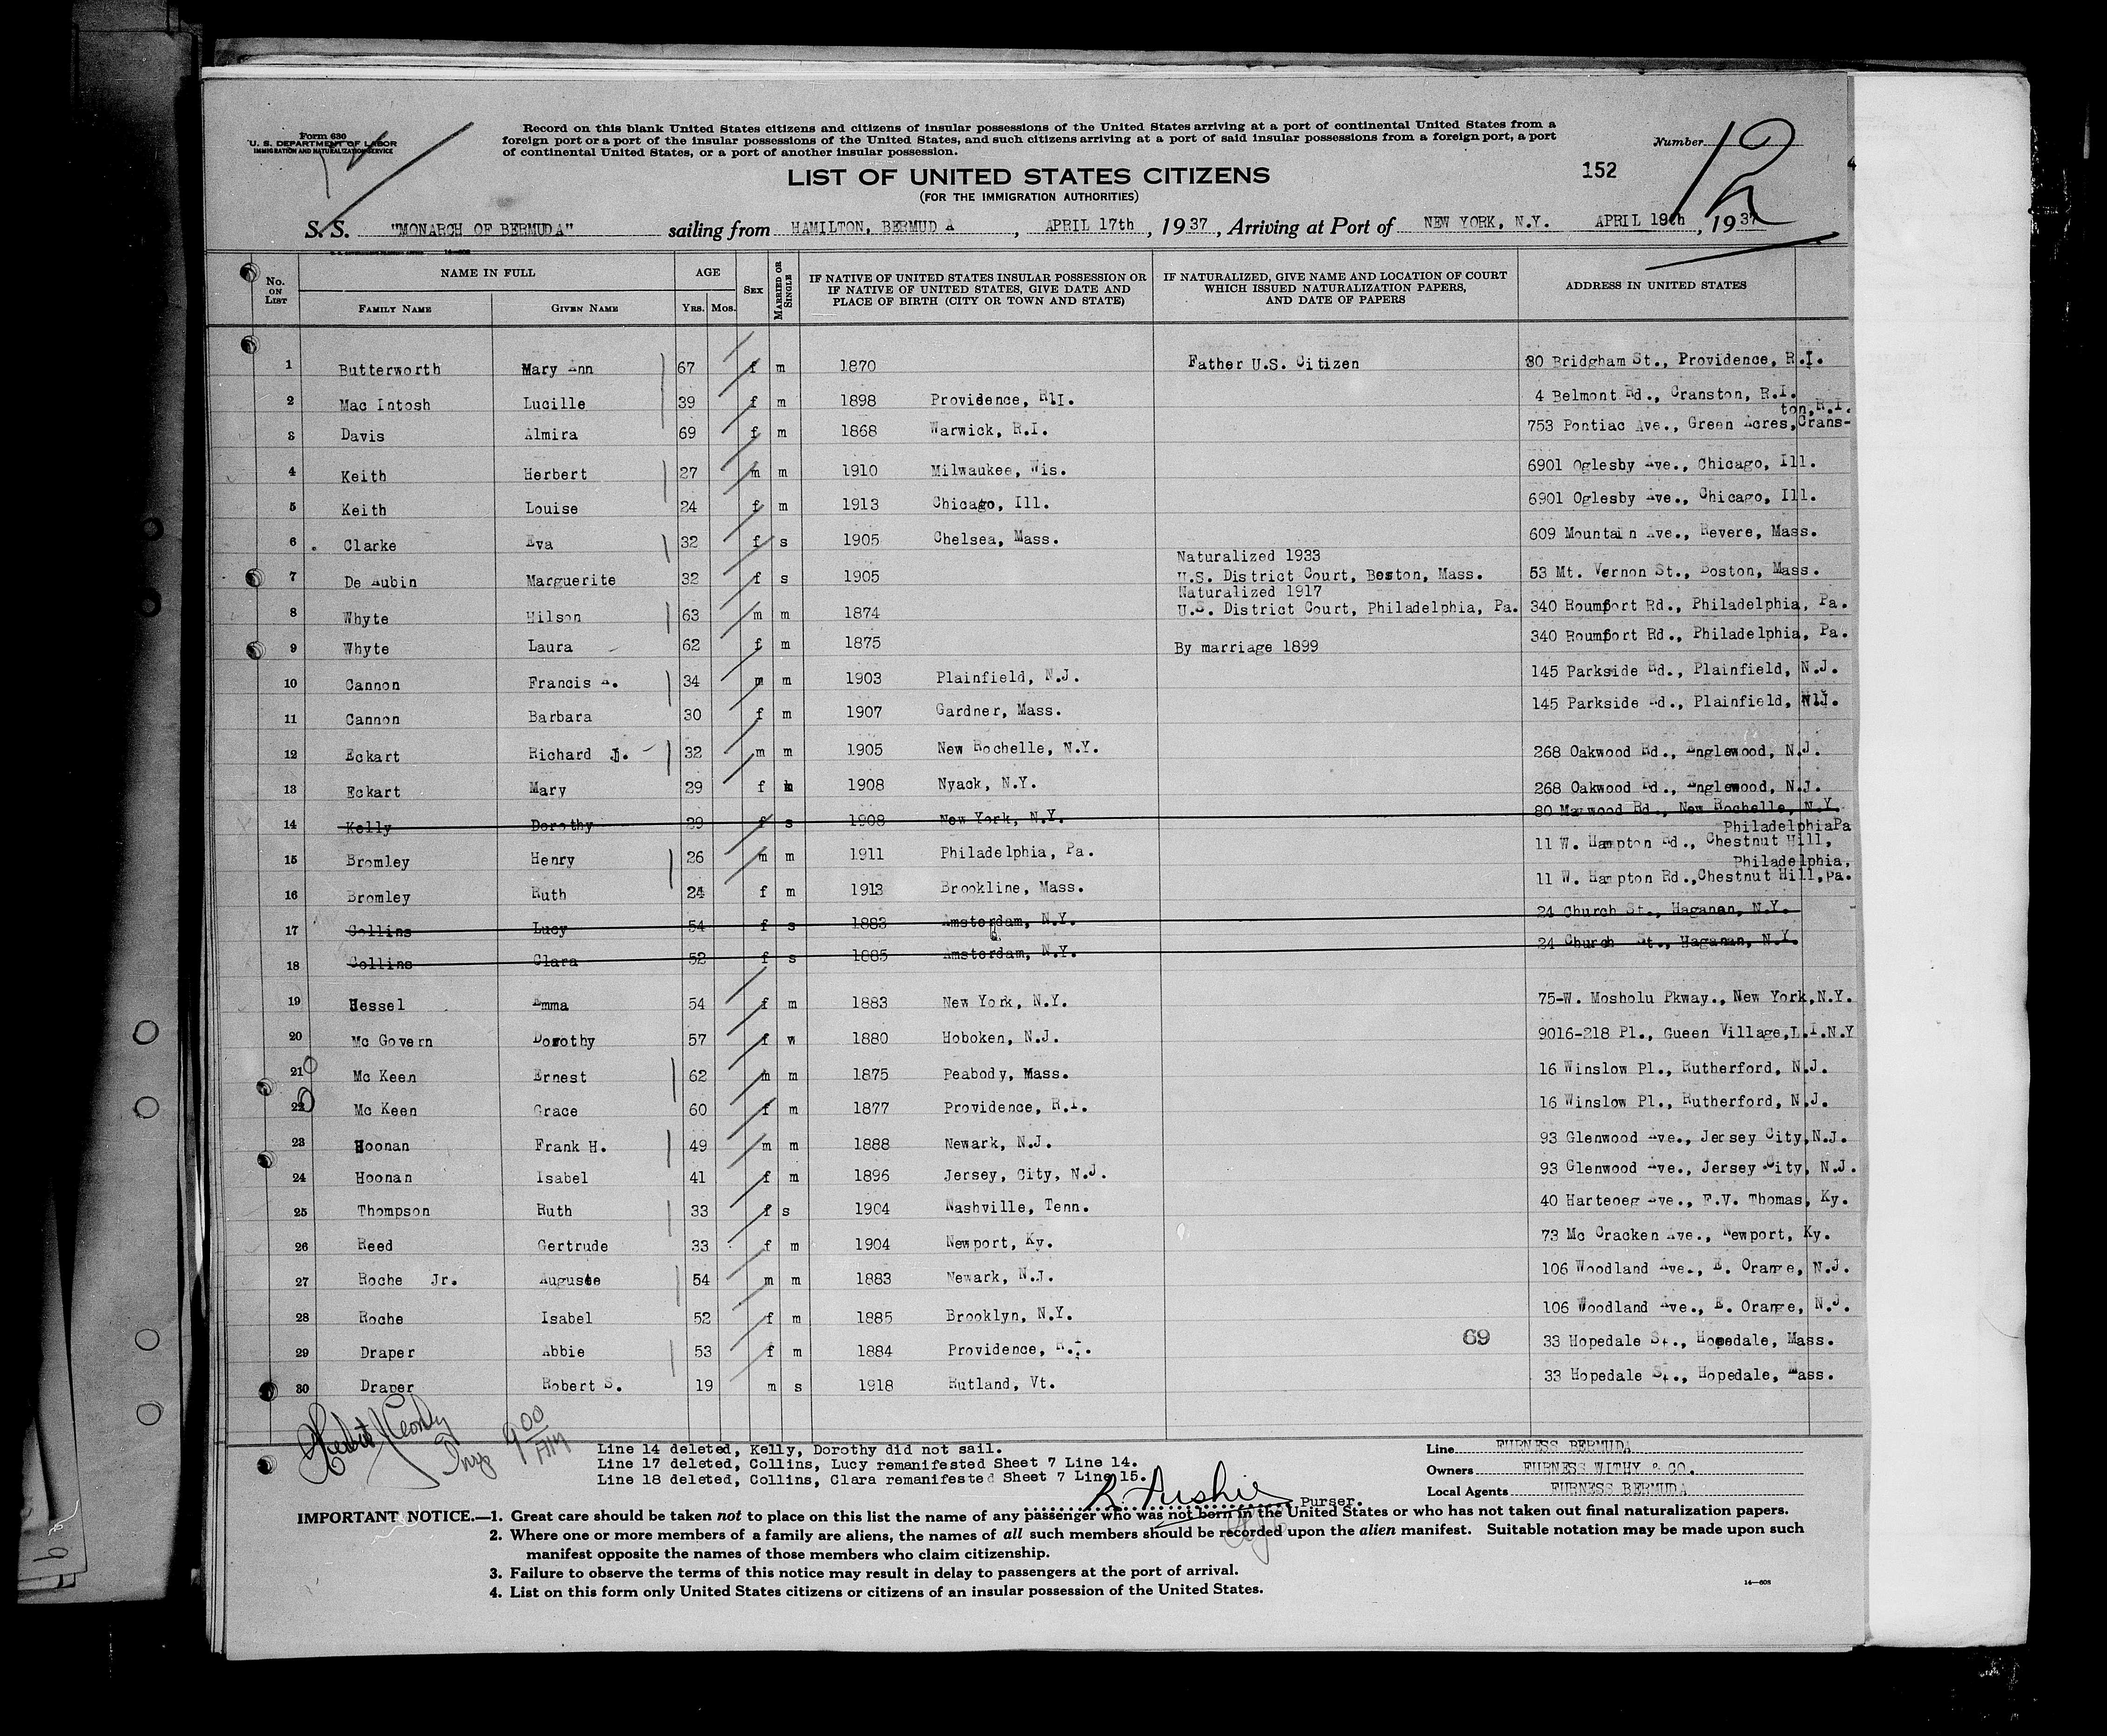 Form 630
U. S. DEPARTMENT OF LABOR
IMMIGRATION AND NATURALIZATION SERVICE
Record on this blank United States citizens and citizens of insular possessions of the United States arriving at a port of continental United States from a
foreign port or a port of the insular possessions of the United States, and such citizens arriving at a port of said insular possessions from a foreign port, a port
of continental United States, or a port of another insular possession.
Number 12
152
LIST OF UNITED STATES CITIZENS
(FOR THE IMMIGRATION AUTHORITIES)
S. S. "MONARCH OF BERMUDA" sailing from HAMILTON, BERMUD A, APRIL 17th, 1937, Arriving at Port of NEW YORK, N.Y. APRIL 19th, 1937
No. ON LIST NAME IN FULL AGE SEX MARRIED OR SINGLE IF NATIVE OF UNITED STATES INSULAR POSSESSION OR IF NATIVE OF UNITED STATES, GIVE DATE AND PLACE OF BIRTH (CITY OR TOWN AND STATE) IF NATURALIZED, GIVE NAME AND LOCATION OF COURT WHICH ISSUED NATURALIZATION PAPERS, AND DATE OF PAPERS ADDRESS IN UNITED STATES
FAMILY NAME GIVEN NAME YRS. MOS.
1 Butterworth Mary Ann 67 f m 1870 Father U.S. Citizen 80 Bridgham St., Providence, R.I.
2 Mac Intosh Lucille 39 f m 1898 Providence, R1I. 4 Belmont Rd., Cranston, R.I.
ton,R.I.
3 Davis Almira 69 f m 1868 Warwick, R.I. 753 Pontiac Ave., Green Acres,Crans-
4 Keith Herbert 27 m m 1910 Milwaukee, Wis. 6901 Oglesby Ave., Chicago, Ill.
5 Keith Louise 24 f m 1913 Chicago, Ill. 6901 Oglesby Ave., Chicago, Ill.
6 Clarke Eva 32 f s 1905 Chelsea, Mass. 609 Mountain Ave., Revere, Mass.
Naturalized 1933
7 De Aubin Marguerite 32 f s 1905 U.S. District Court, Boston, Mass. 53 Mt. Vernon St., Boston, Mass.
Naturalized 1917
8 Whyte Wilson 63 m m 1874 U.S. District Court, Philadelphia, Pa. 340 Roumfort Rd., Philadelphia, Pa.
9 Whyte Laura 62 f m 1875 By marriage 1899 340 Roumfort Rd., Philadelphia, Pa.
10 Cannon Francis A. 34 m m 1903 Plainfield, N.J. 145 Parkside Rd., Plainfield, N.J.
11 Cannon Barbara 30 f m 1907 Gardner, Mass. 145 Parkside Rd., Plainfield, N1J.
12 Eckart Richard J. 32 m m 1905 New Rochelle, N.Y. 268 Oakwood Rd., Englewood, N.J.
13 Eckart Mary 29 f m 1908 Nyack, N.Y. 268 Oakwood Rd., Englewood, N.J.
14 Kelly Dorothy 29 f s 1908 New York, N.Y. 80 Maywood Rd., New Rochelle, N.Y.
PhiladelphiaPa
15 Bromley Henry 26 m m 1911 Philadelphia, Pa. 11 W. Hampton Rd., Chestnut Hill,
Philadelphia,
16 Bromley Ruth 24 f m 1913 Brookline, Mass. 11 W. Hampton Rd.,Chestnut Hill,Pa.
17 Collins Lucy 54 f s 1883 Amsterdam, N.Y. 24 Church St., Haganan, N.Y.
18 Collins Clara 52 f s 1885 Amsterdam, N.Y. 24 Church St., Haganan, N.Y.
19 Hessel Emma 54 f m 1883 New York, N.Y. 75-W. Mosholu Pkway., New York,N.Y.
20 Mc Govern Dorothy 57 f w 1880 Hoboken, N.J. 9016-218 Pl., Gueen Village,L.I.N.Y
21 Mc Keen Ernest 62 m m 1875 Peabody, Mass. 16 Winslow Pl., Rutherford, N.J.
22 Mc Keen Grace 60 f m 1877 Providence, R.I. 16 Winslow Pl., Rutherford, N.J.
23 Hoonan Frank H. 49 m m 1888 Newark, N.J. 93 Glenwood Ave., Jersey City,N.J.
24 Hoonan Isabel 41 f m 1896 Jersey, City, N.J. 93 Glenwood Ave., Jersey City, N.J.
25 Thompson Ruth 33 f s 1904 Nashville, Tenn. 40 Harteoeg Ave., F.V. Thomas, Ky.
26 Reed Gertrude 33 f m 1904 Newport, Ky. 73 Mc Cracken Ave., Newport, Ky.
27 Roche Jr. Auguste 54 m m 1883 Newark, N.J. 106 Woodland Ave., E. Orange, N.J.
28 Roche Isabel 52 f m 1885 Brooklyn, N.Y. 106 Woodland Ave., E. Orange, N.J.
69
29 Draper Abbie 53 f m 1884 Providence, R.I. 33 Hopedale St., Hopedale, Mass.
30 Draper Robert S. 19 m s 1918 Rutland, Vt. 33 Hopedale St., Hopedale, Mass.
9 00 AM
Line 14 deleted, Kelly, Dorothy did not sail.
Line 17 deleted, Collins, Lucy remanifested Sheet 7 Line 14.
Line 18 deleted, Collins, Clara remanifested Sheet 7 Line 15.
Purser.
Line FURNESS BERMUDA
Owners FURNESS WITHY & CO.
Local Agents FURNESS BERMUDA
IMPORTANT NOTICE.—1. Great care should be taken not to place on this list the name of any passenger who was not born in the United States or who has not taken out final naturalization papers.
2. Where one or more members of a family are aliens, the names of all such members should be recorded upon the alien manifest. Suitable notation may be made upon such
manifest opposite the names of those members who claim citizenship.
3. Failure to observe the terms of this notice may result in delay to passengers at the port of arrival.
4. List on this form only United States citizens or citizens of an insular possession of the United States.
14—608